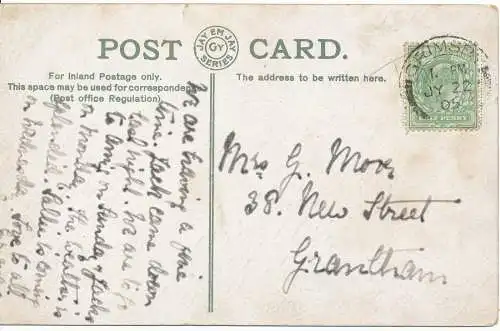 POST CARD.
JAY EM JAY
GY
SERIES
For Inland Postage only.
This space may be used for correspondence
(Post office Regulation).
The address to be written here.
We are having a fine
time. Jack came down
last night. We are to go
to Amy on Sunday, Jack
on Monday. The weather is
splendid. is coming
on Wednesday. Love to all
Mrs G. Moor
38. New Street
Grantham
GRIMSBY
JY 22
05
HALF PENNY